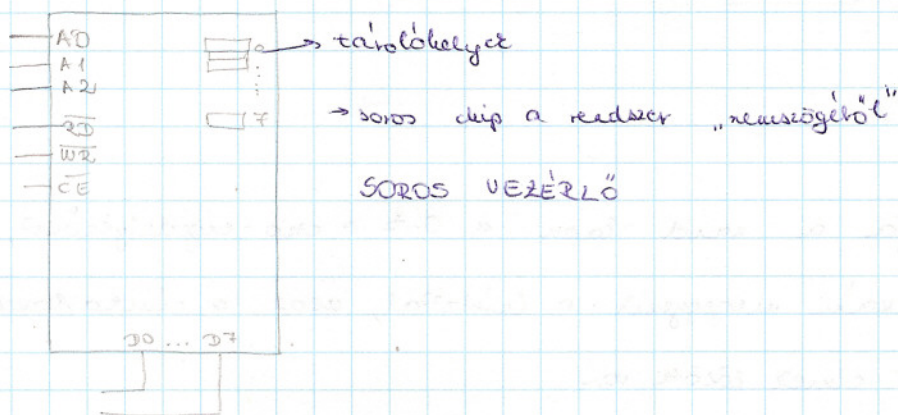 A0
A1
A2
RD
WR
CE
0 → tárolóhelyek
7
→ soros chip a rendszer „szemszögéből”
SOROS VEZÉRLŐ
D0 ... D7